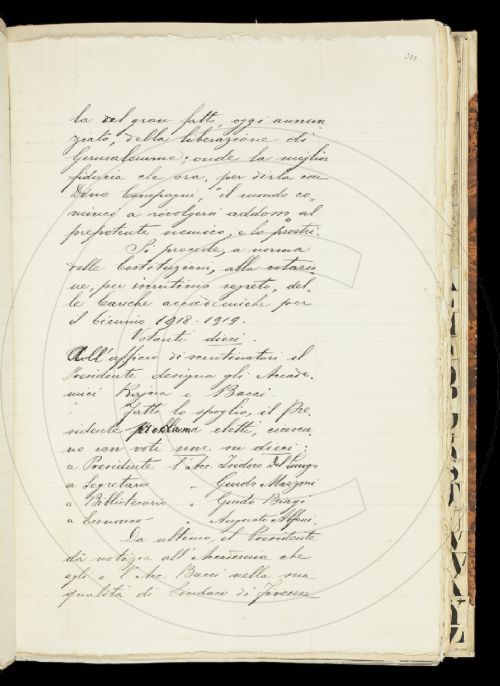 321
la del gran fatto, oggi annun,
ziato, della liberazione di
Gerusalemme; onde la miglior
fiducia che ora, per dirla con
Dino Compagni, "il mondo co,
minci a rivolgersi addosso" al
prepotente nemico, e lo prostri.
Si procede, a norma
delle Costituzioni, alla votazio,
ne, per iscrutinio segreto, del,
le Cariche accademiche per
il biennio 1918-1919.
Votanti dieci.
All'ufficio di scrutinatori il
Presidente designa gli Accade,
mici Rajna e Bacci.
Fatto lo spoglio, il Pre,
sidente proclama eletti, ciascu,
no con voti nove su dieci:
a Presidente l'Acc. Isidoro Del Lungo
a Segretario " Guido Mazzoni
a Bibliotecario " Guido Biagi
a Economo " Augusto Alfani.
Da ultimo, il Presidente
dà notizia all'Accademia che
egli e l'Acc. Bacci nella sua
qualità di Sindaco di Firenze